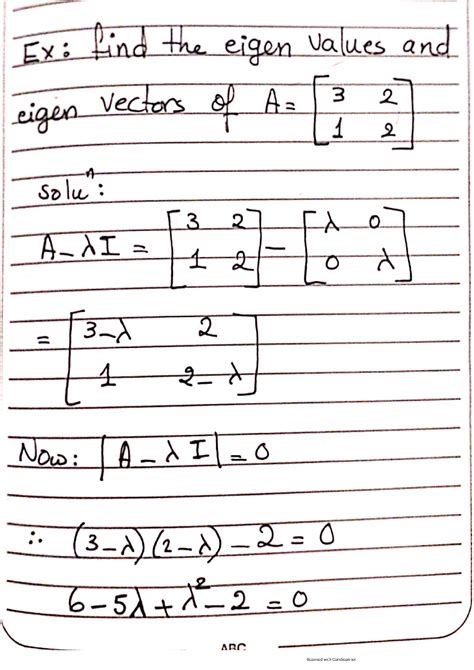 Ex: find the eigen values and
eigen vectors of A = [3 2
1 2]
soluⁿ:
A - λI = [3 2
1 2] - [λ 0
0 λ]
= [3-λ 2
1 2-λ]
Now: |A - λI| = 0
∴ (3-λ)(2-λ) - 2 = 0
6 - 5λ + λ² - 2 = 0
ABC
Scanned with CamScanner